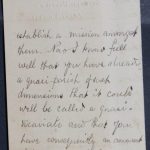 establish a mission amongst
them. Now I know full
well that you have already
a quasi-parish of such
dimensions that it could
well be called a quasi-
vicariate and that you
have consequently an